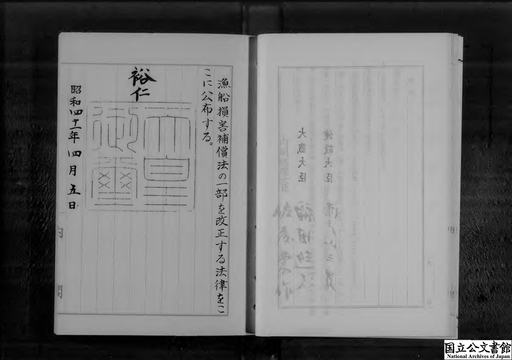 漁船損害補償法の一部を改正する法律をこ
こに公布する。
裕仁
天皇御璽
昭和四十一年四月五日
大蔵大臣
国立公文書館
National Archives of Japan